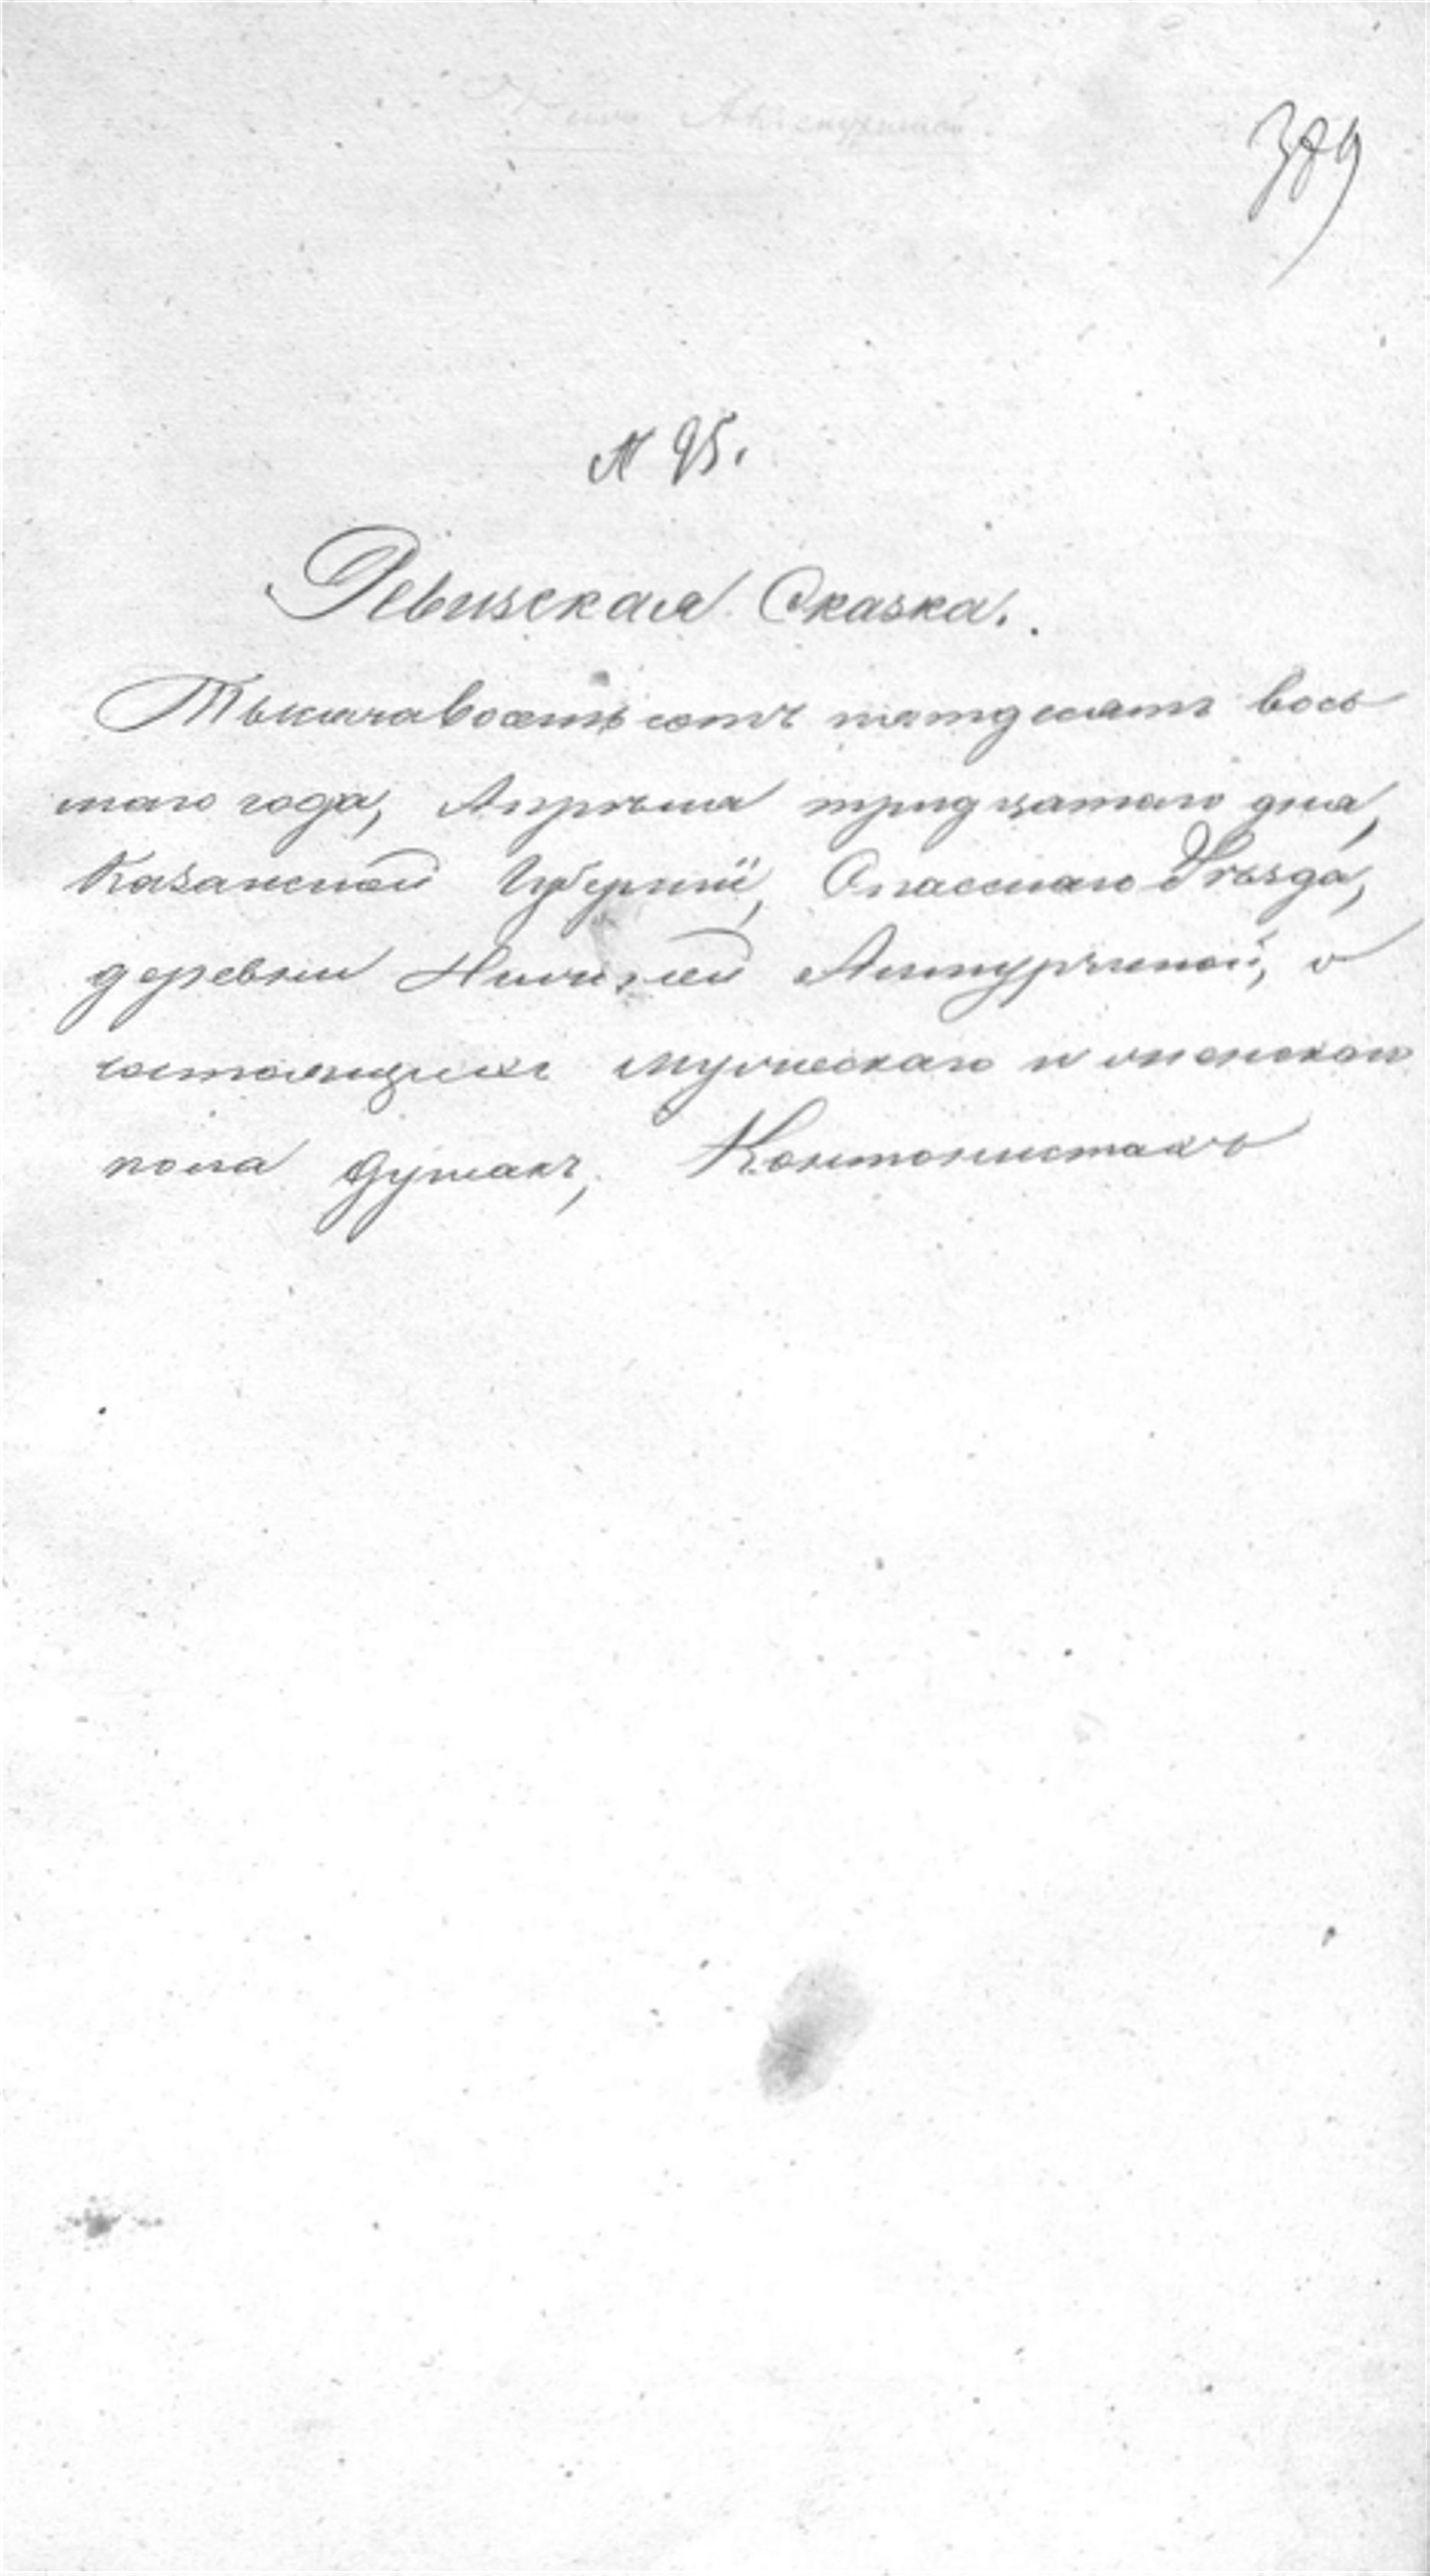 389
№ 95.
Ревизская Сказка.
Тысяча восемь сотъ пятдесятъ вось
маго года, Апрѣля тридцатаго дня,
Казанской Губерніи, Спасскаго Уѣзда,
деревни Нижней, о
состоящихъ мужескаго и женскаго
пола душахъ, Контонистахъ